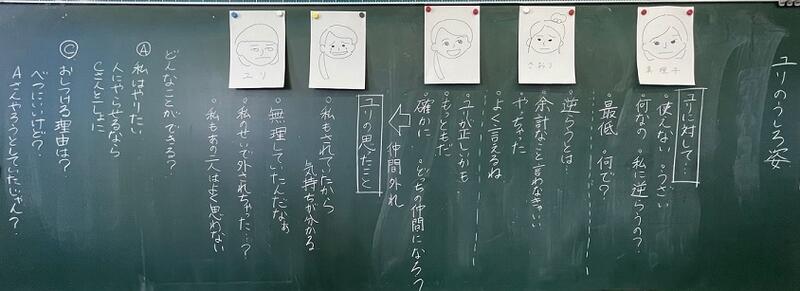 ユリのうしろ姿
真理子
ユリに対して…
・使えない ・うざい
・何なの ・私に逆らうの?
・最低 ・何で?
さおり
・逆らうとは…
・余計なこと言わなきゃいい
・やっちゃった
・よく言えるね
・ユリが正しいかも
・もっともだ
・確かに ・どっちの仲間になろう?
仲間外れ
ユリの思ったこと
・私もされていたから
気持ちが分かる
・無理していたんだなぁ
・私のせいで外されちゃった…?
・私もあの二人はよく思わない
ユリ
どんなことができる?
Ⓐ 私はやりたい
人にやらせるなら
Cさんといっしょに
Ⓒ おしつける理由は?
べつにいいけど?
Aさんやろうとしていたじゃん?